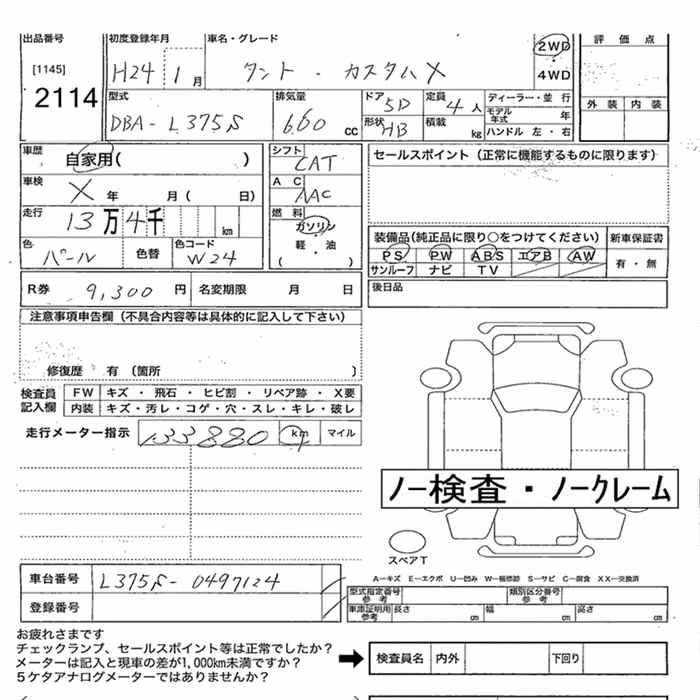 出品番号 初度登録年月 車名・グレード 2WD 評価点
[1145] H24 1月 タント・カスタムX 4WD
2114 型式 排気量 ドア 5D 定員 4人 ディーラー・並行 外装 内装
DBA-L375S 660cc 形状 HB 積載 kg モデル年式 年
ハンドル 左・右
車歴 自家用( ) シフト CAT セールスポイント (正常に機能するものに限ります)
車検 X 年 月( 日) AC AAC
走行 13万4千 km 燃料 ガソリン・軽・油 ( )
装備品(純正品に限り○をつけてください) 新車保証書
色 パール 色替 色コード W24 PS PW ABS エアB AW 有・無
サンルーフ ナビ TV
R券 9,300円 名変期限 月 日 後日品
注意事項申告欄 (不具合内容等は具体的に記入して下さい)
修復歴 有 (箇所 )
検査員記入欄 FW キズ・飛石・ヒビ割・リペア跡・X要
内装 キズ・汚レ・コゲ・穴・スレ・キレ・破レ
走行メーター指示 133880 km マイル
ノー検査・ノークレーム
スペアT
A―キズ E―エクボ U―凹み W―補修跡 S―サビ C―腐食 XX―交換済
車台番号 L375S-0497124
型式指定番号 参考 類別区分番号 参考
登録番号 車庫証明用 参考 長さ cm 幅 cm 高さ cm
お疲れさまです
チェックランプ、セールスポイント等は正常でしたか?
メーターは記入と現車の差が1,000km未満ですか?
5ケタアナログメーターではありませんか?
➡ 検査員名 内外 下回り